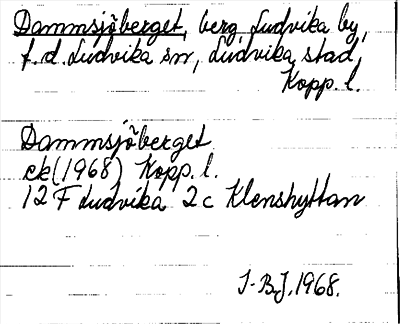 Dammsjöberget, berg, Ludvika by,
f.d. Ludvika sn, Ludvika stad,
Kopp. l.
Dammsjöberget
ek (1968) Kopp. l.
12 F Ludvika 2 c Klenshyttan
I-B.J. 1968.